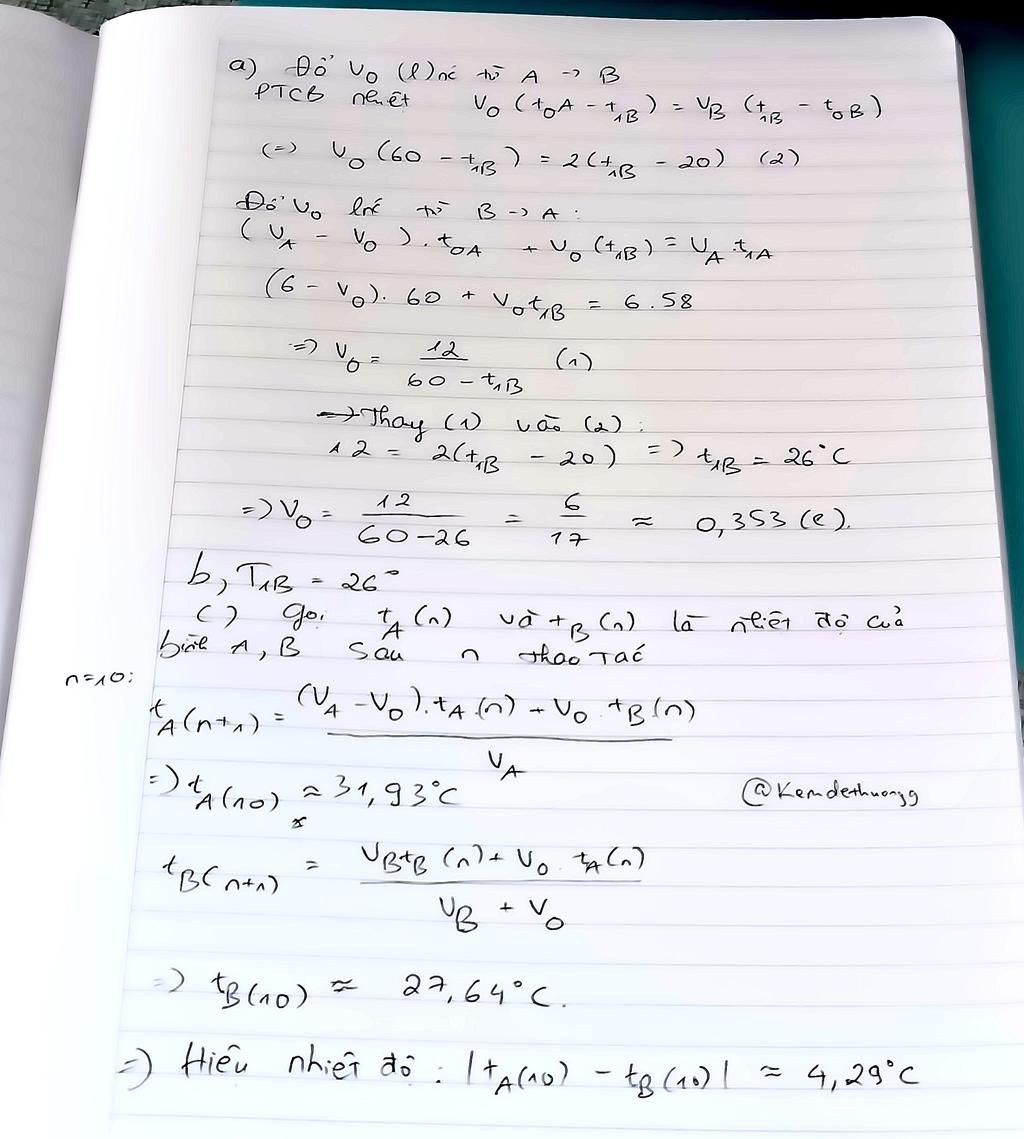 a) Đổ V₀ (l) nc từ A → B
PTCB nhiệt V₀ (t₀A - t₁B) = VB (t₁B - t₀B)
(=) V₀ (60 - t₁B) = 2(t₁B - 20) (2)
Đổ V₀ lnc từ B → A :
(VA - V₀). t₀A + V₀ (t₁B) = VA t₁A
(6 - V₀). 60 + V₀t₁B = 6.58
=) V₀ = 12 / (60 - t₁B) (1)
→ Thay (1) vào (2) :
12 = 2(t₁B - 20) =) t₁B = 26°C
=) V₀ = 12 / (60-26) = 6/17 ≈ 0,353 (l).
b, T₁B = 26°
c) gọi tA(n) và tB(n) là nhiệt độ của
bình A, B sau n thao tác
n=10:
tA(n+1) = ((VA - V₀).tA(n) + V₀ . tB(n)) / VA
=) tA(10) ≈ 31,93°C
@Kemdethuongg
tB(n+1) = (VBtB(n) + V₀ . tA(n)) / (VB + V₀)
=) tB(10) ≈ 27,64°C.
=) Hiệu nhiệt độ : |tA(10) - tB(10)| ≈ 4,29°C